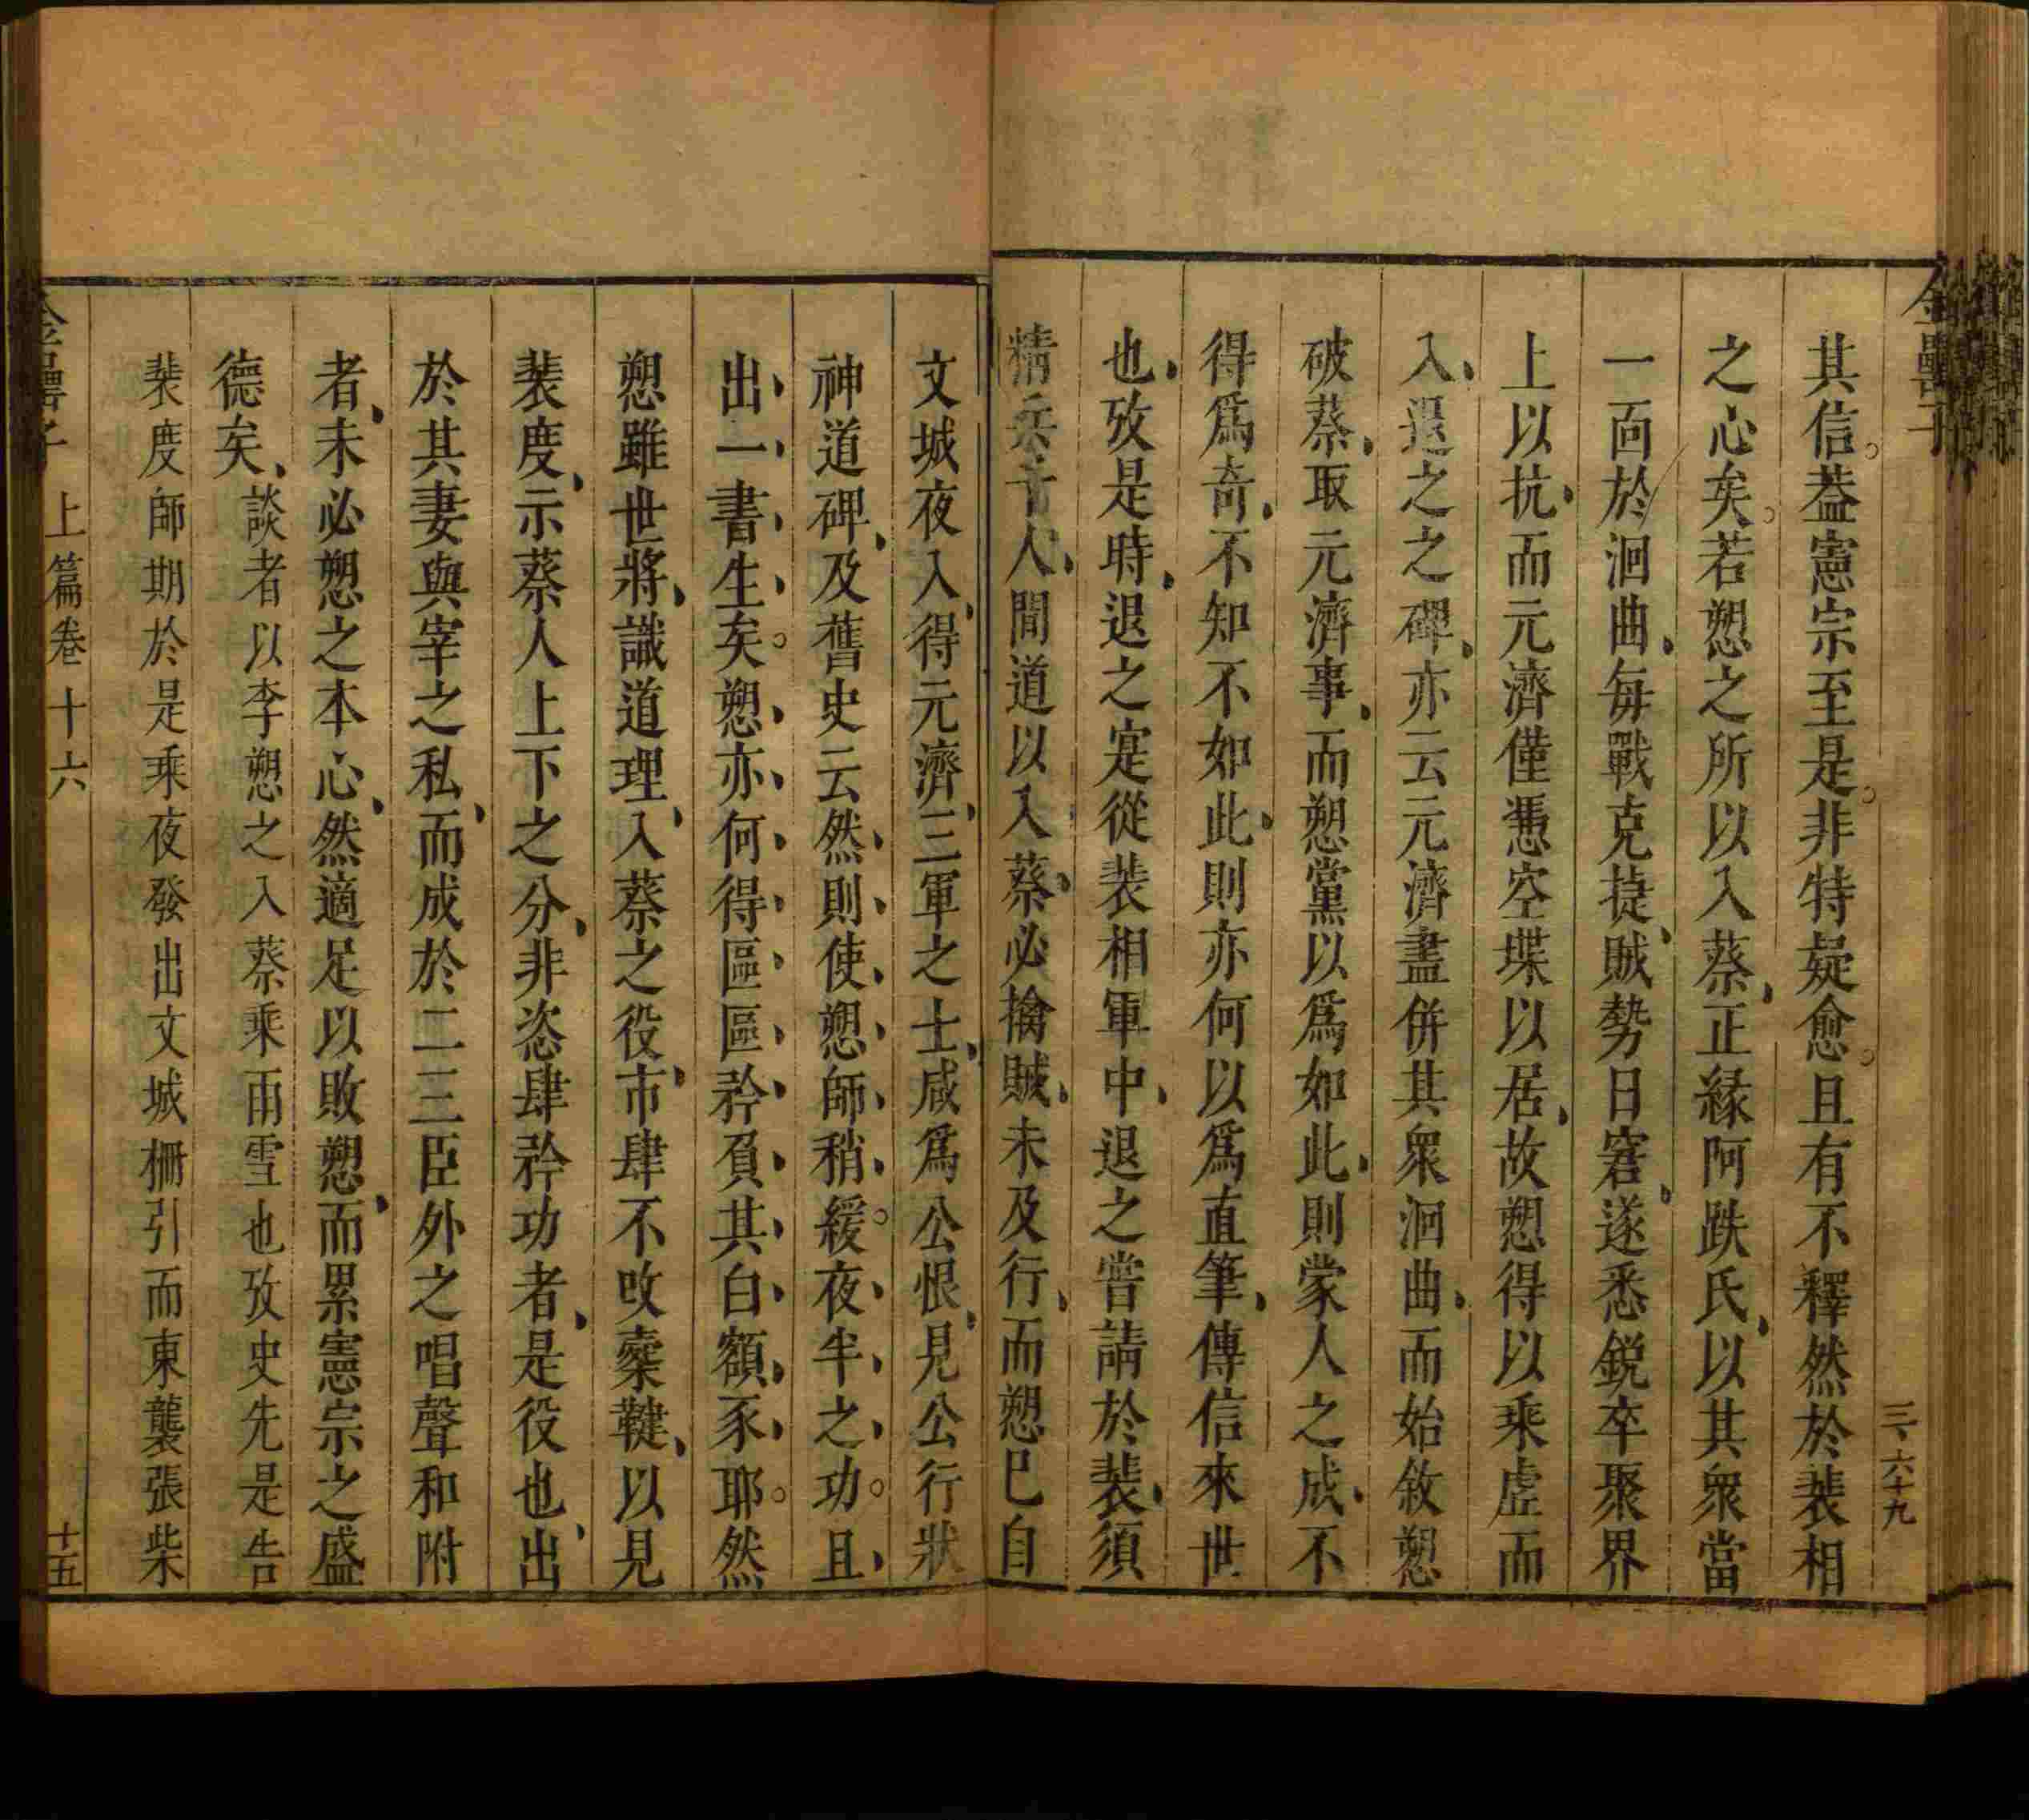 金罍子
三、六十九
其信。葢憲宗至是。非特疑愈。且有不釋然於裴相
之心矣。若愬之所以入蔡、正縁阿跌氏、以其衆當
一面於洄曲、每戰克㨗、賊勢日窘、遂悉銳卒聚界
上以抗、而元濟僅憑空堞以居、故愬得以乘虛而
入、退之之碑、亦云元濟盡併其衆洄曲、而始敘愬
破蔡、取元濟事、而愬黨以爲如此、則蒙人之成、不
得爲奇、不知不如此、則亦何以爲直筆、傳信來世
也、攷是時、退之寔從裴相軍中、退之嘗請於裴、須
精兵千人、間道以入蔡、必擒賊、未及行、而愬巳自
文城夜入、得元濟、三軍之士、咸爲公恨、見公行狀
神道碑、及舊史云然、則使愬師稍緩。夜半之功。且
出一書生矣。愬亦何得區區矜負其白額豕耶。然
愬雖世將、識道理、入蔡之役、市肆不攺櫜鞬、以見
裴度、示蔡人上下之分、非恣肆矜功者、是役也、出
於其妻與宰之私、而成於二三臣外之唱聲和附
者、未必愬之本心、然適足以敗愬、而累憲宗之盛
德矣、
談者以李愬之入蔡乘雨雪也攷史先是告
裴度師期於是乘夜發出文城柵引而東襲張柴
金罍子 上篇卷十六 十五